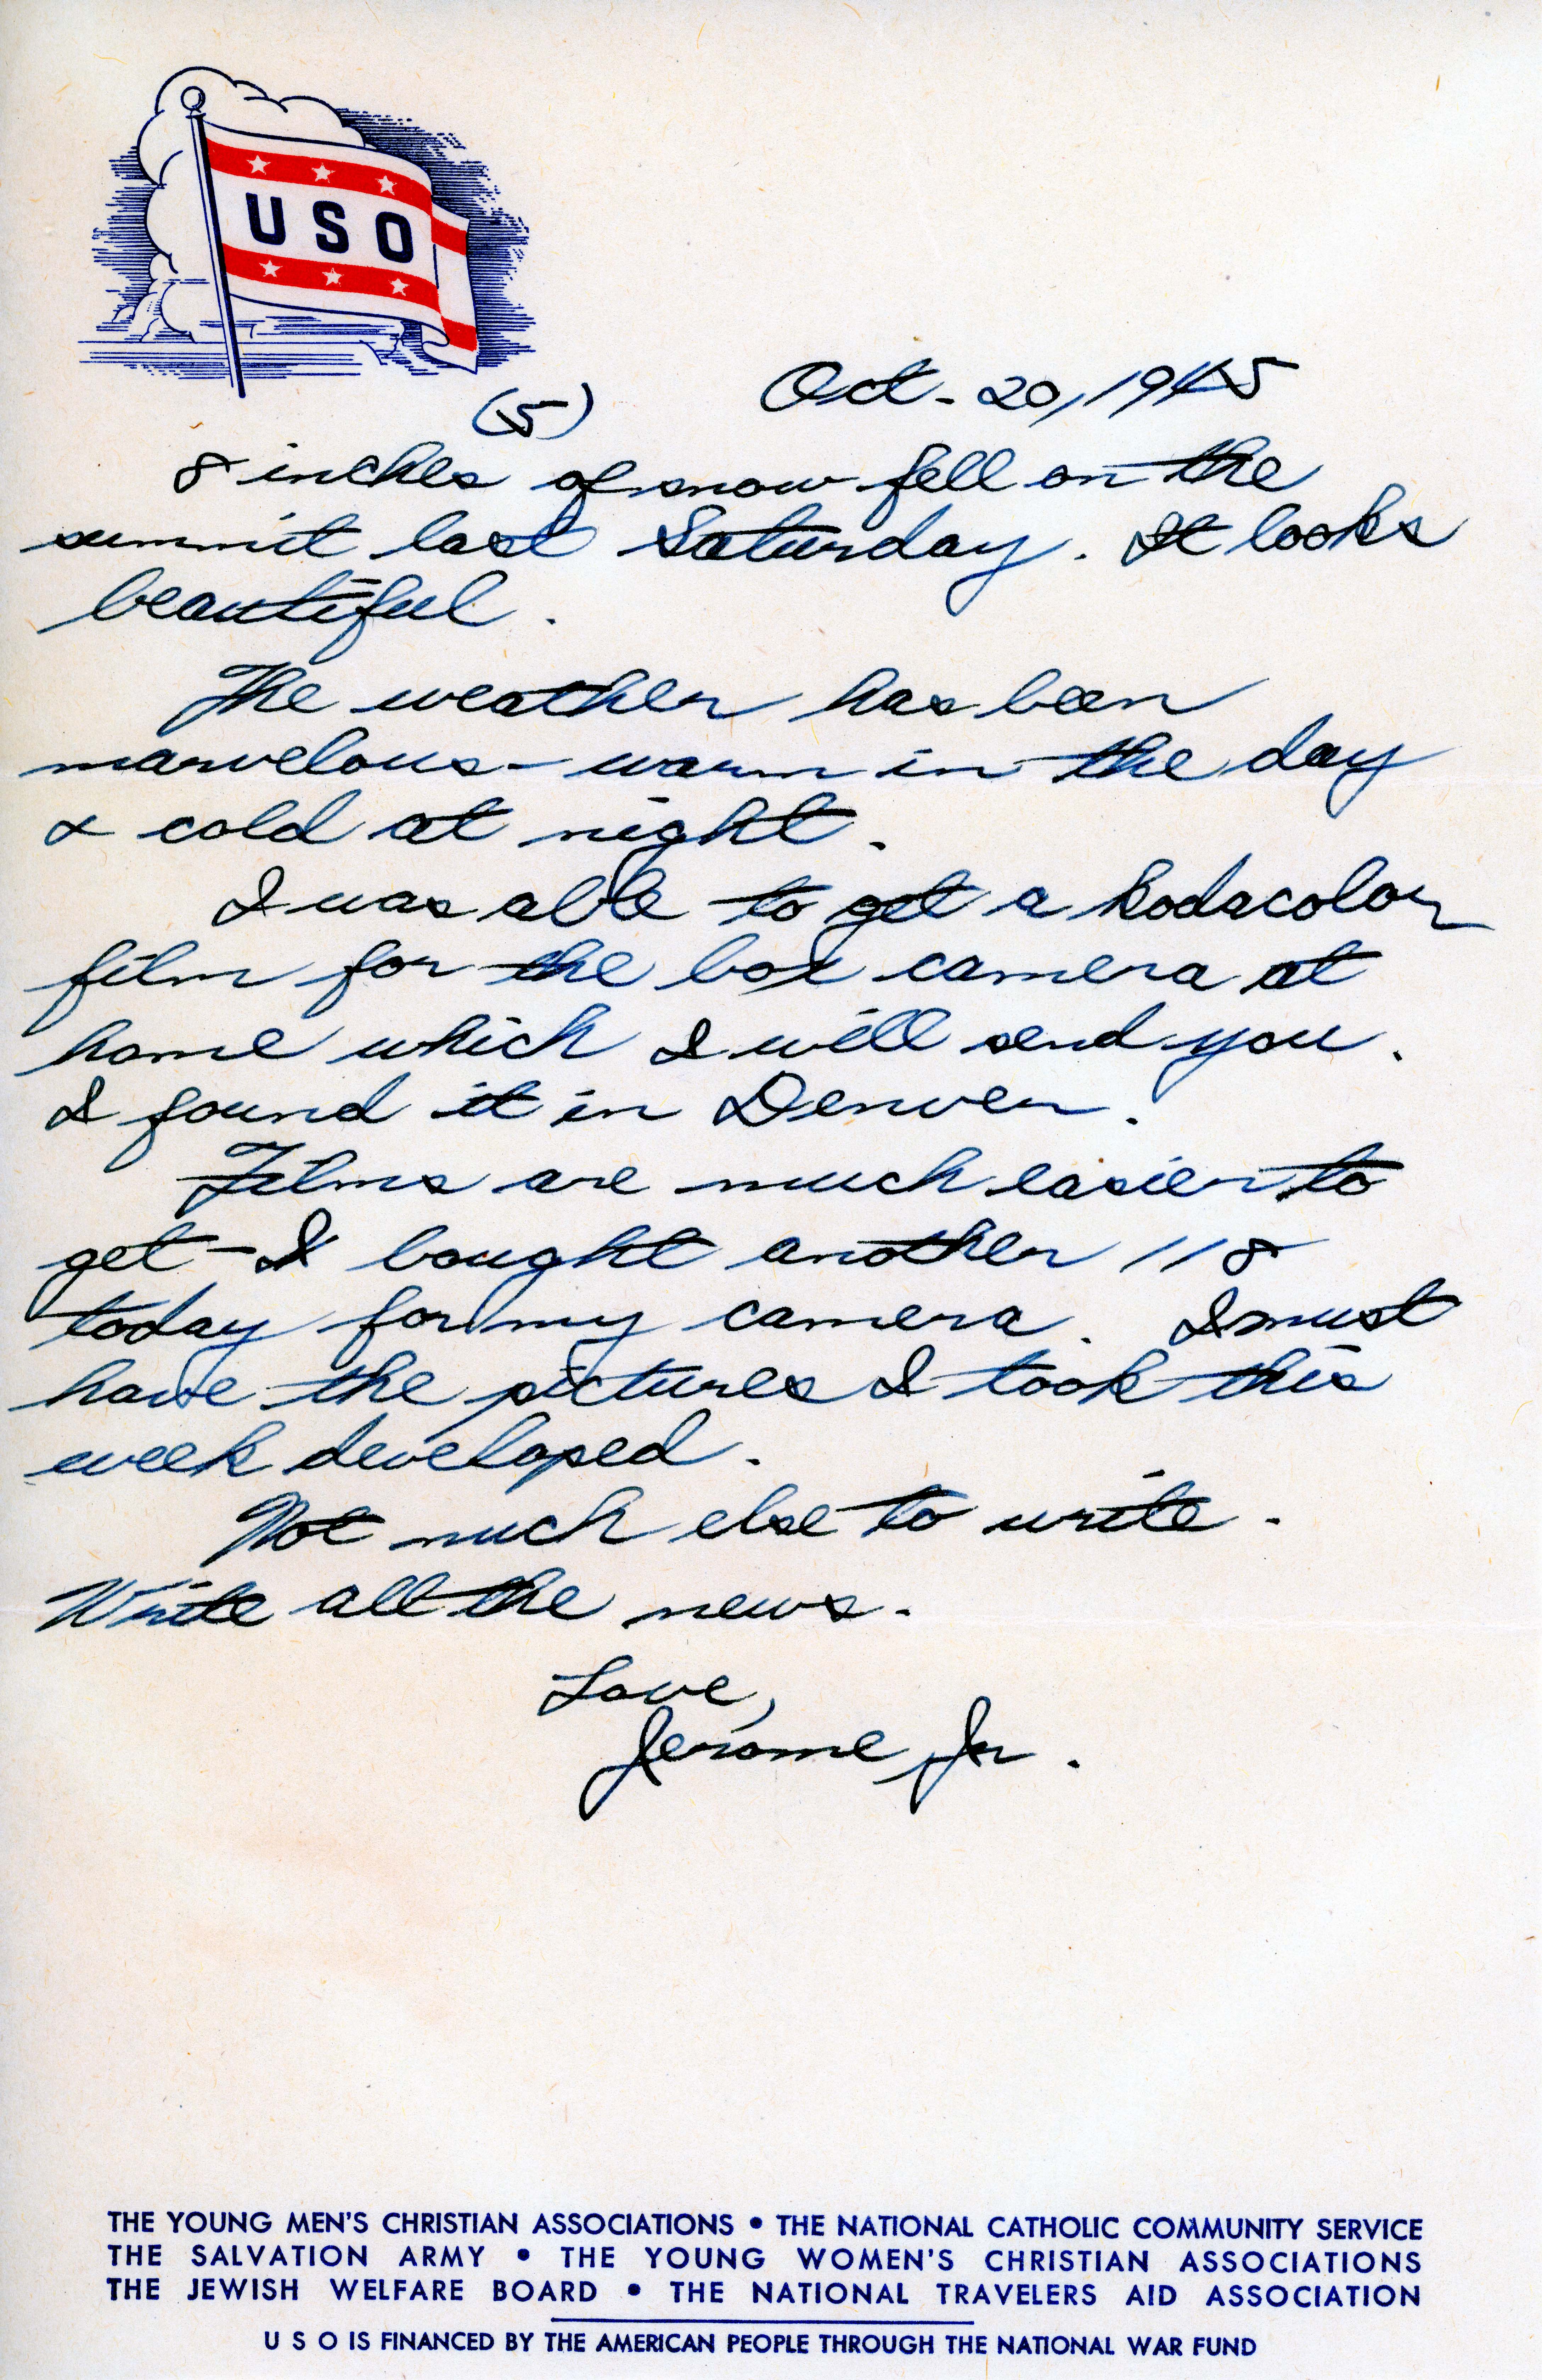 USO
(5) Oct. 20, 1945
8 inches of snow fell on the
summit last Saturday. It looks
beautiful.
The weather has been
marvelous - warm in the day
& cold at night.
I was able to get a Kodacolor
film for the box camera at
home which I will send you.
I found it in Denver.
Films are much easier to
get - I bought another 118
today for my camera. I must
have the pictures I took this
week developed.
Not much else to write.
Write all the news.
Love,
Jerome, Jr.
THE YOUNG MEN'S CHRISTIAN ASSOCIATIONS • THE NATIONAL CATHOLIC COMMUNITY SERVICE
THE SALVATION ARMY • THE YOUNG WOMEN'S CHRISTIAN ASSOCIATIONS
THE JEWISH WELFARE BOARD • THE NATIONAL TRAVELERS AID ASSOCIATION
U S O IS FINANCED BY THE AMERICAN PEOPLE THROUGH THE NATIONAL WAR FUND